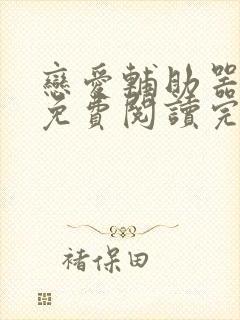 戀愛輔助器
免費閱讀完
褚保田